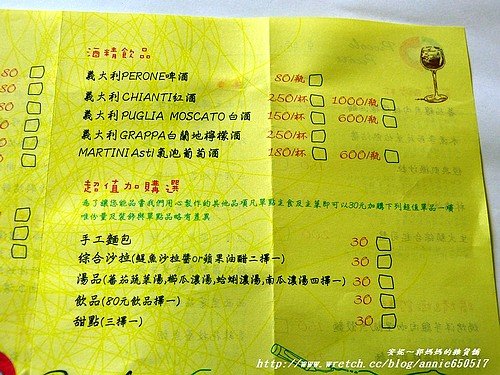 酒精飲品
義大利PERONE啤酒 80/瓶
義大利CHIANTI紅酒 250/杯 1000/瓶
義大利PUGLIA MOSCATO白酒 150/杯 600/瓶
義大利GRAPPA白蘭地檸檬酒 250/杯
MARTINI Asti氣泡葡萄酒 180/杯 600/瓶
超值加購選
為了讓您能品嘗我們用心製作的其他品項凡單點主食及主菜即可以30元加購下列超值單品一項
唯份量及裝飾與單點品略有差異
手工麵包 30
綜合沙拉(鯷魚沙拉醬or蘋果油醋二擇一) 30
湯品(蕃茄蔬菜湯,椰瓜濃湯,蛤蜊濃湯,南瓜濃湯四擇一) 30
飲品(80元飲品擇一) 30
甜點(三擇一) 30
安妮~郭媽媽的雜貨舖
http://www.wretch.cc/blog/annie650517